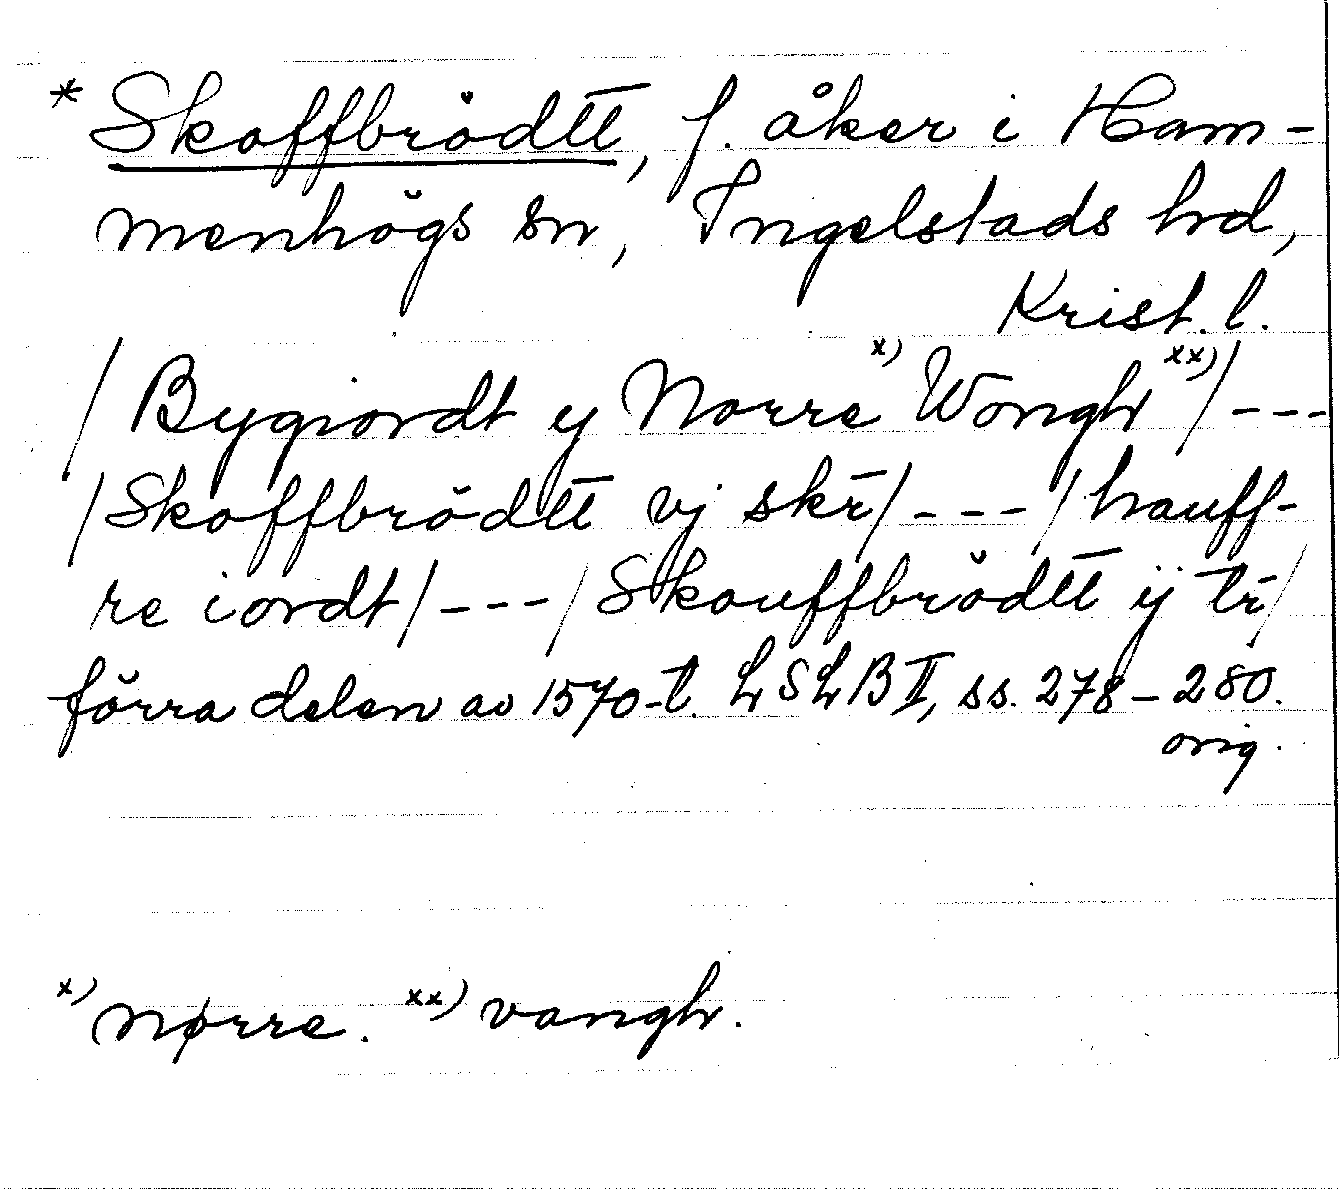 * Skoffbrödtt, f. åker i Ham-
menhögs sn, Ingelstads hd,
Krist. l.
/Bygiordt y Norre x) Wongh xx)/---
/Skoffbrödtt vj skr̄/---/hauff-
re iordt/---/Skouffbrödtt ÿ tr̄/
förra delen av 1570-t. LSLB II, ss. 278-280.
orig.
x) nørre. xx) vangh.